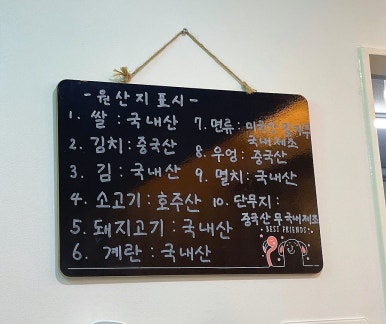 -원산지 표시-
1. 쌀 : 국내산
2. 김치 : 중국산
3. 김 : 국내산
4. 소고기 : 호주산
5. 돼지고기 : 국내산
6. 계란 : 국내산
7. 면류 :
국내제조
8. 우엉 : 중국산
9. 멸치 : 국내산
10. 단무지 :
중국산 무 국내제조
BEST FRIENDS